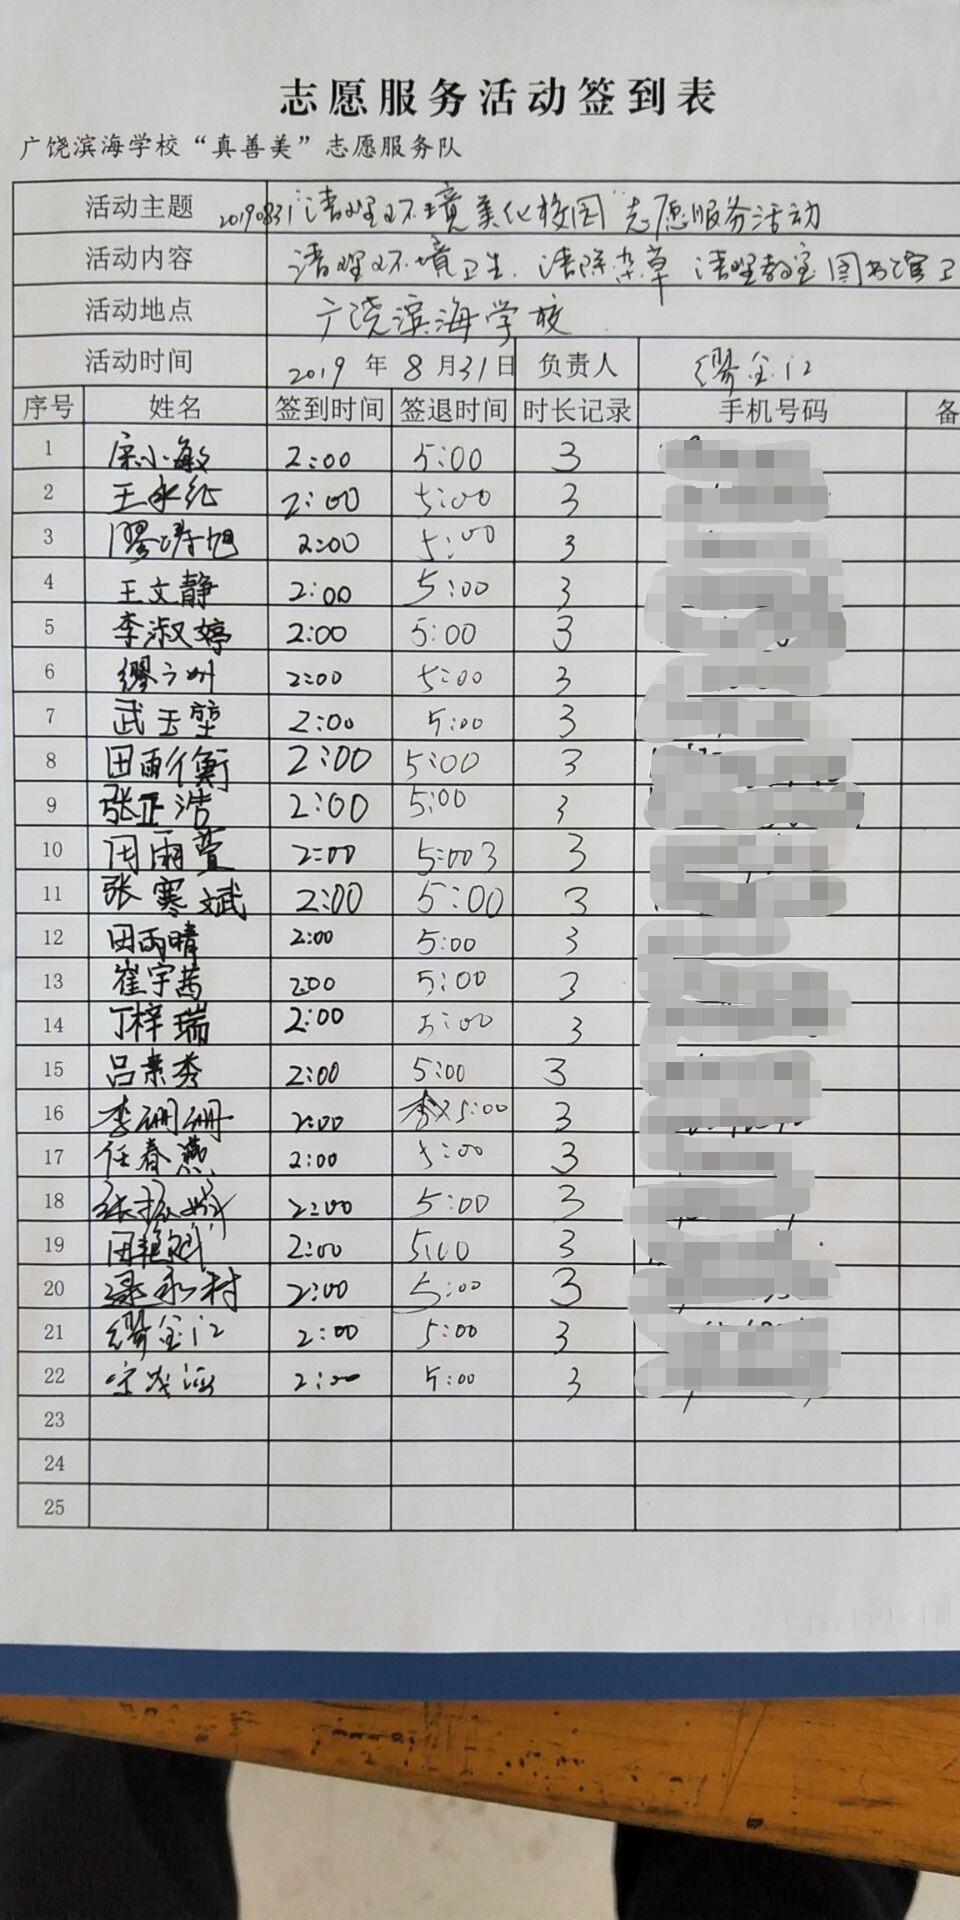 志愿服务活动签到表
广饶滨海学校“真善美”志愿服务队
活动主题 20190831“清理环境美化校园”志愿服务活动
活动内容 清理环境卫生、清除杂草 清理教室图书馆卫
活动地点 广饶滨海学校
活动时间 2019年8月31日 负责人 缪金江
序号 姓名 签到时间 签退时间 时长记录 手机号码 备
1 宋小敏 2:00 5:00 3
2 王永红 2:00 5:00 3
3 2:00 5:00 3
4 王文静 2:00 5:00 3
5 李淑婷 2:00 5:00 3
6 缪广州 2:00 5:00 3
7 武玉堃 2:00 5:00 3
8 田雨衡 2:00 5:00 3
9 张正浩 2:00 5:00 3
10 周雨萱 2:00 5:003 3
11 张寒斌 2:00 5:00 3
12 田雨晴 2:00 5:00 3
13 崔宇茜 200 5:00 3
14 丁梓瑞 2:00 5:00 3
15 吕荣秀 2:00 5:00 3
16 李珊珊 2:00 5:00 3
17 任春燕 2:00 5:00 3
18 张振斌 2:00 5:00 3
19 田艳斌 2:00 5:00 3
20 梁永村 2:00 5:00 3
21 缪金江 2:00 5:00 3
22 2:00 5:00 3
23
24
25